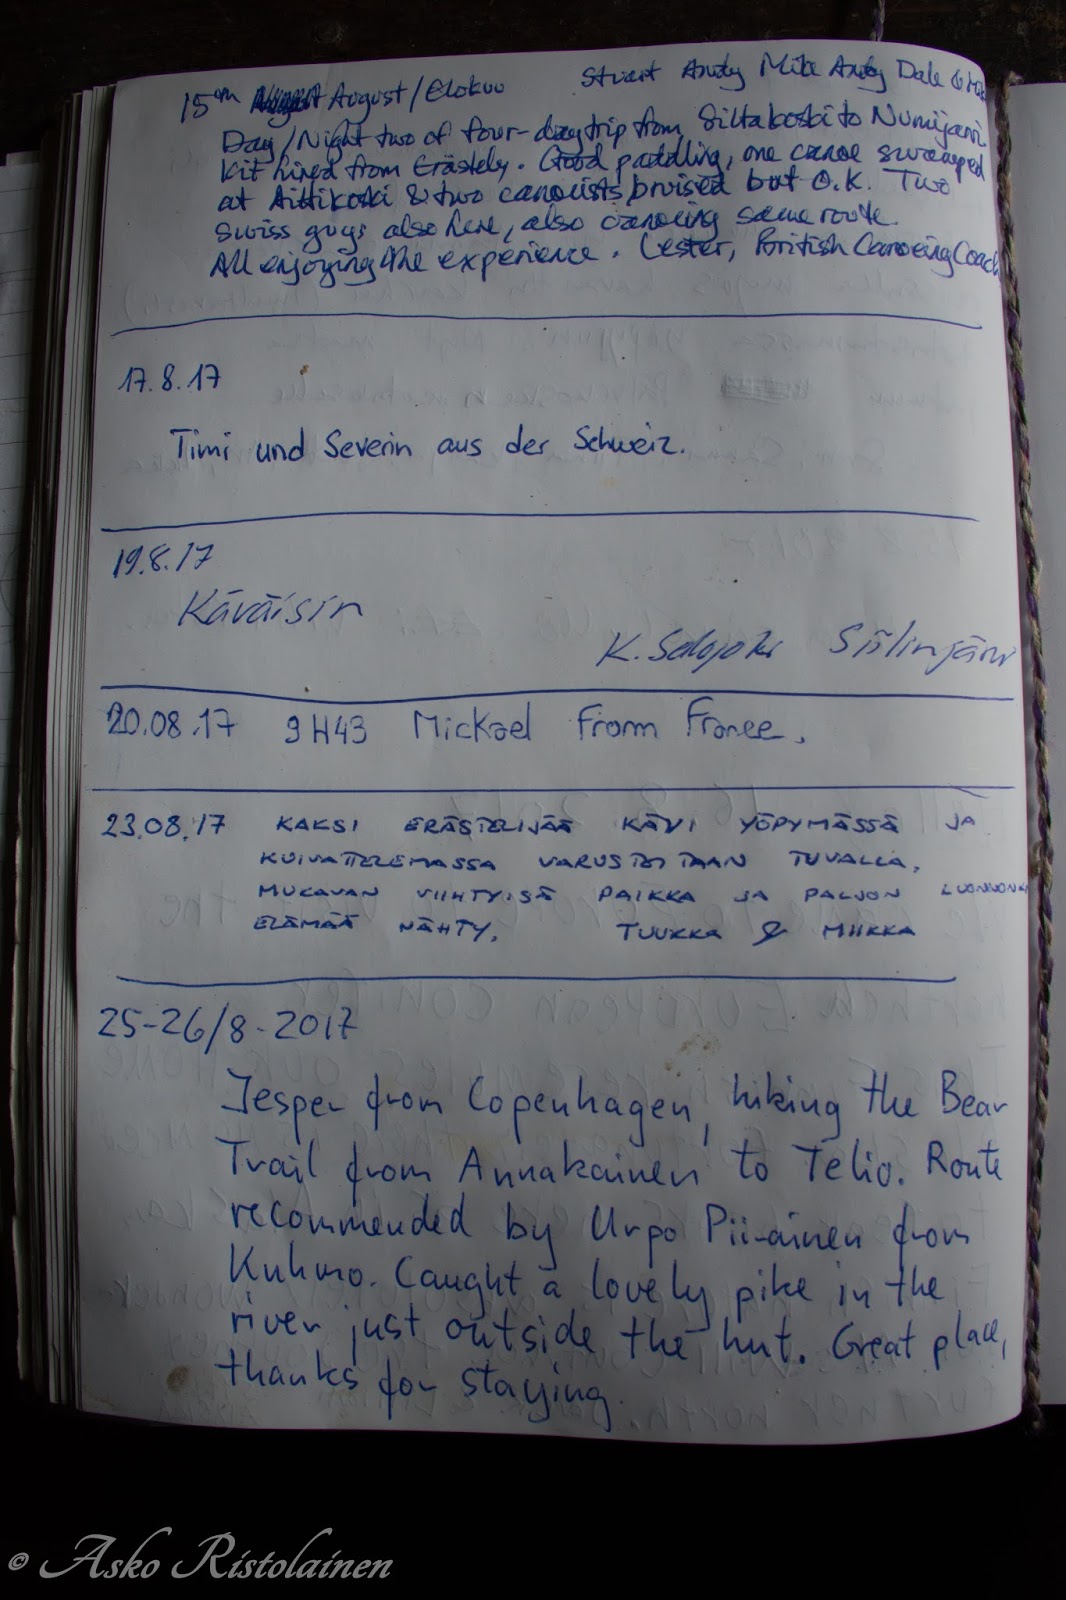 15 August/Elokuu Stuart Andy Mike Andy Dale &
Day/Night two of four-day trip from Siltakoski to Numijarvi
Kit hired from Erästely. Good paddling, one canoe swamped
at Aittikoski & two canoeists bruised but O.K. Two
Swiss guys also here, also canoeing same route.
All enjoying the experience. Lester, British Canoeing Coach
17.8.17
Timi und Severin aus der Schweiz.
19.8.17
Käväisin
K. Salojoki Siilinjärvi
20.08.17 9H43 Mickael From France.
23.08.17 KAKSI ERÄSTELIJÄÄ KÄVI YÖPYMÄSSÄ JA
KUIVATTELEMASSA VARUSTEITAAN TUVALLA.
MUKAVAN VIIHTYISÄ PAIKKA JA PALJON LUONNON
ELÄMÄÄ NÄHTY. TUUKKA & MIIKKA
25-26/8-2017
Jesper from Copenhagen, hiking the Bear
Trail from Annakainen to Telio. Route
recommended by Urpo Piirainen from
Kuhmo. Caught a lovely pike in the
river just outside the hut. Great place,
thanks for staying.
© Asko Ristolainen